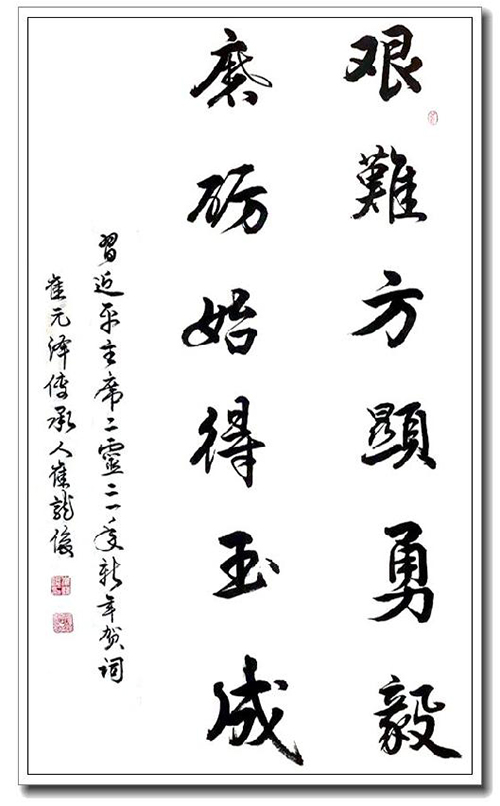 艰難方顯勇毅
磨砺始得玉成
習近平主席二零二一年新年贺词
崔元泽传承人崔龍俊